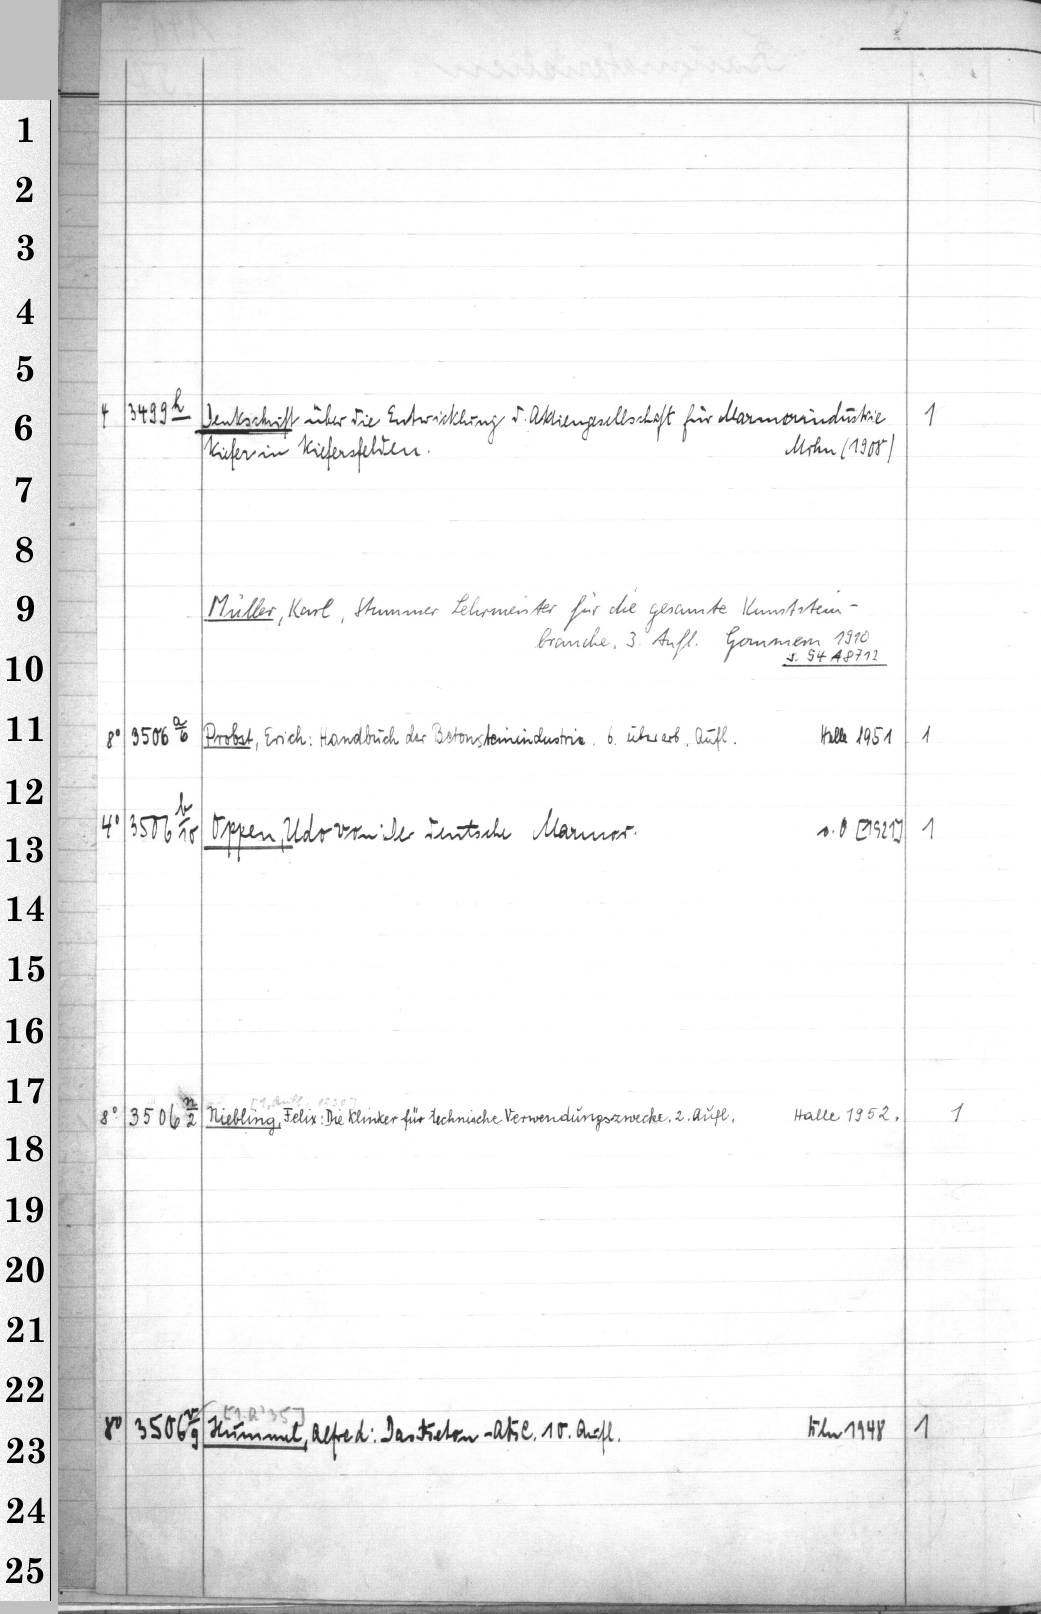 1
2
3
4
5
6
4 3499 h Denkschrift über die Entwicklung d. Aktiengesellschaft für Marmorindustrie 1
Kiefer in Kiefersfelden. Mchn (1908)
7
8
9
Müller, Karl, Stummer Lehrmeister für die gesamte Kunststein-
branche. 3. Aufl. Gommern 1910
s. S4 A8712
10
11
8° 3506 a/6 Probst, Erich: Handbuch der Betonsteinindustrie. 6. überarb. Aufl. Halle 1951 1
12
4° 3506 b/10 Oppen, Udo von: Der deutsche Marmor. o. O [1921] 1
13
14
15
16
17
[1. Aufl.
8° 3506 n/2 Niebling, Felix: Die Klinker für technische Verwendungszwecke. 2. Aufl. Halle 1952. 1
18
19
20
21
22
[1.A '35]
8° 3506 v/9 Hummel, Alfred: Das Beton-ABC. 10. Aufl. Köln 1948 1
23
24
25